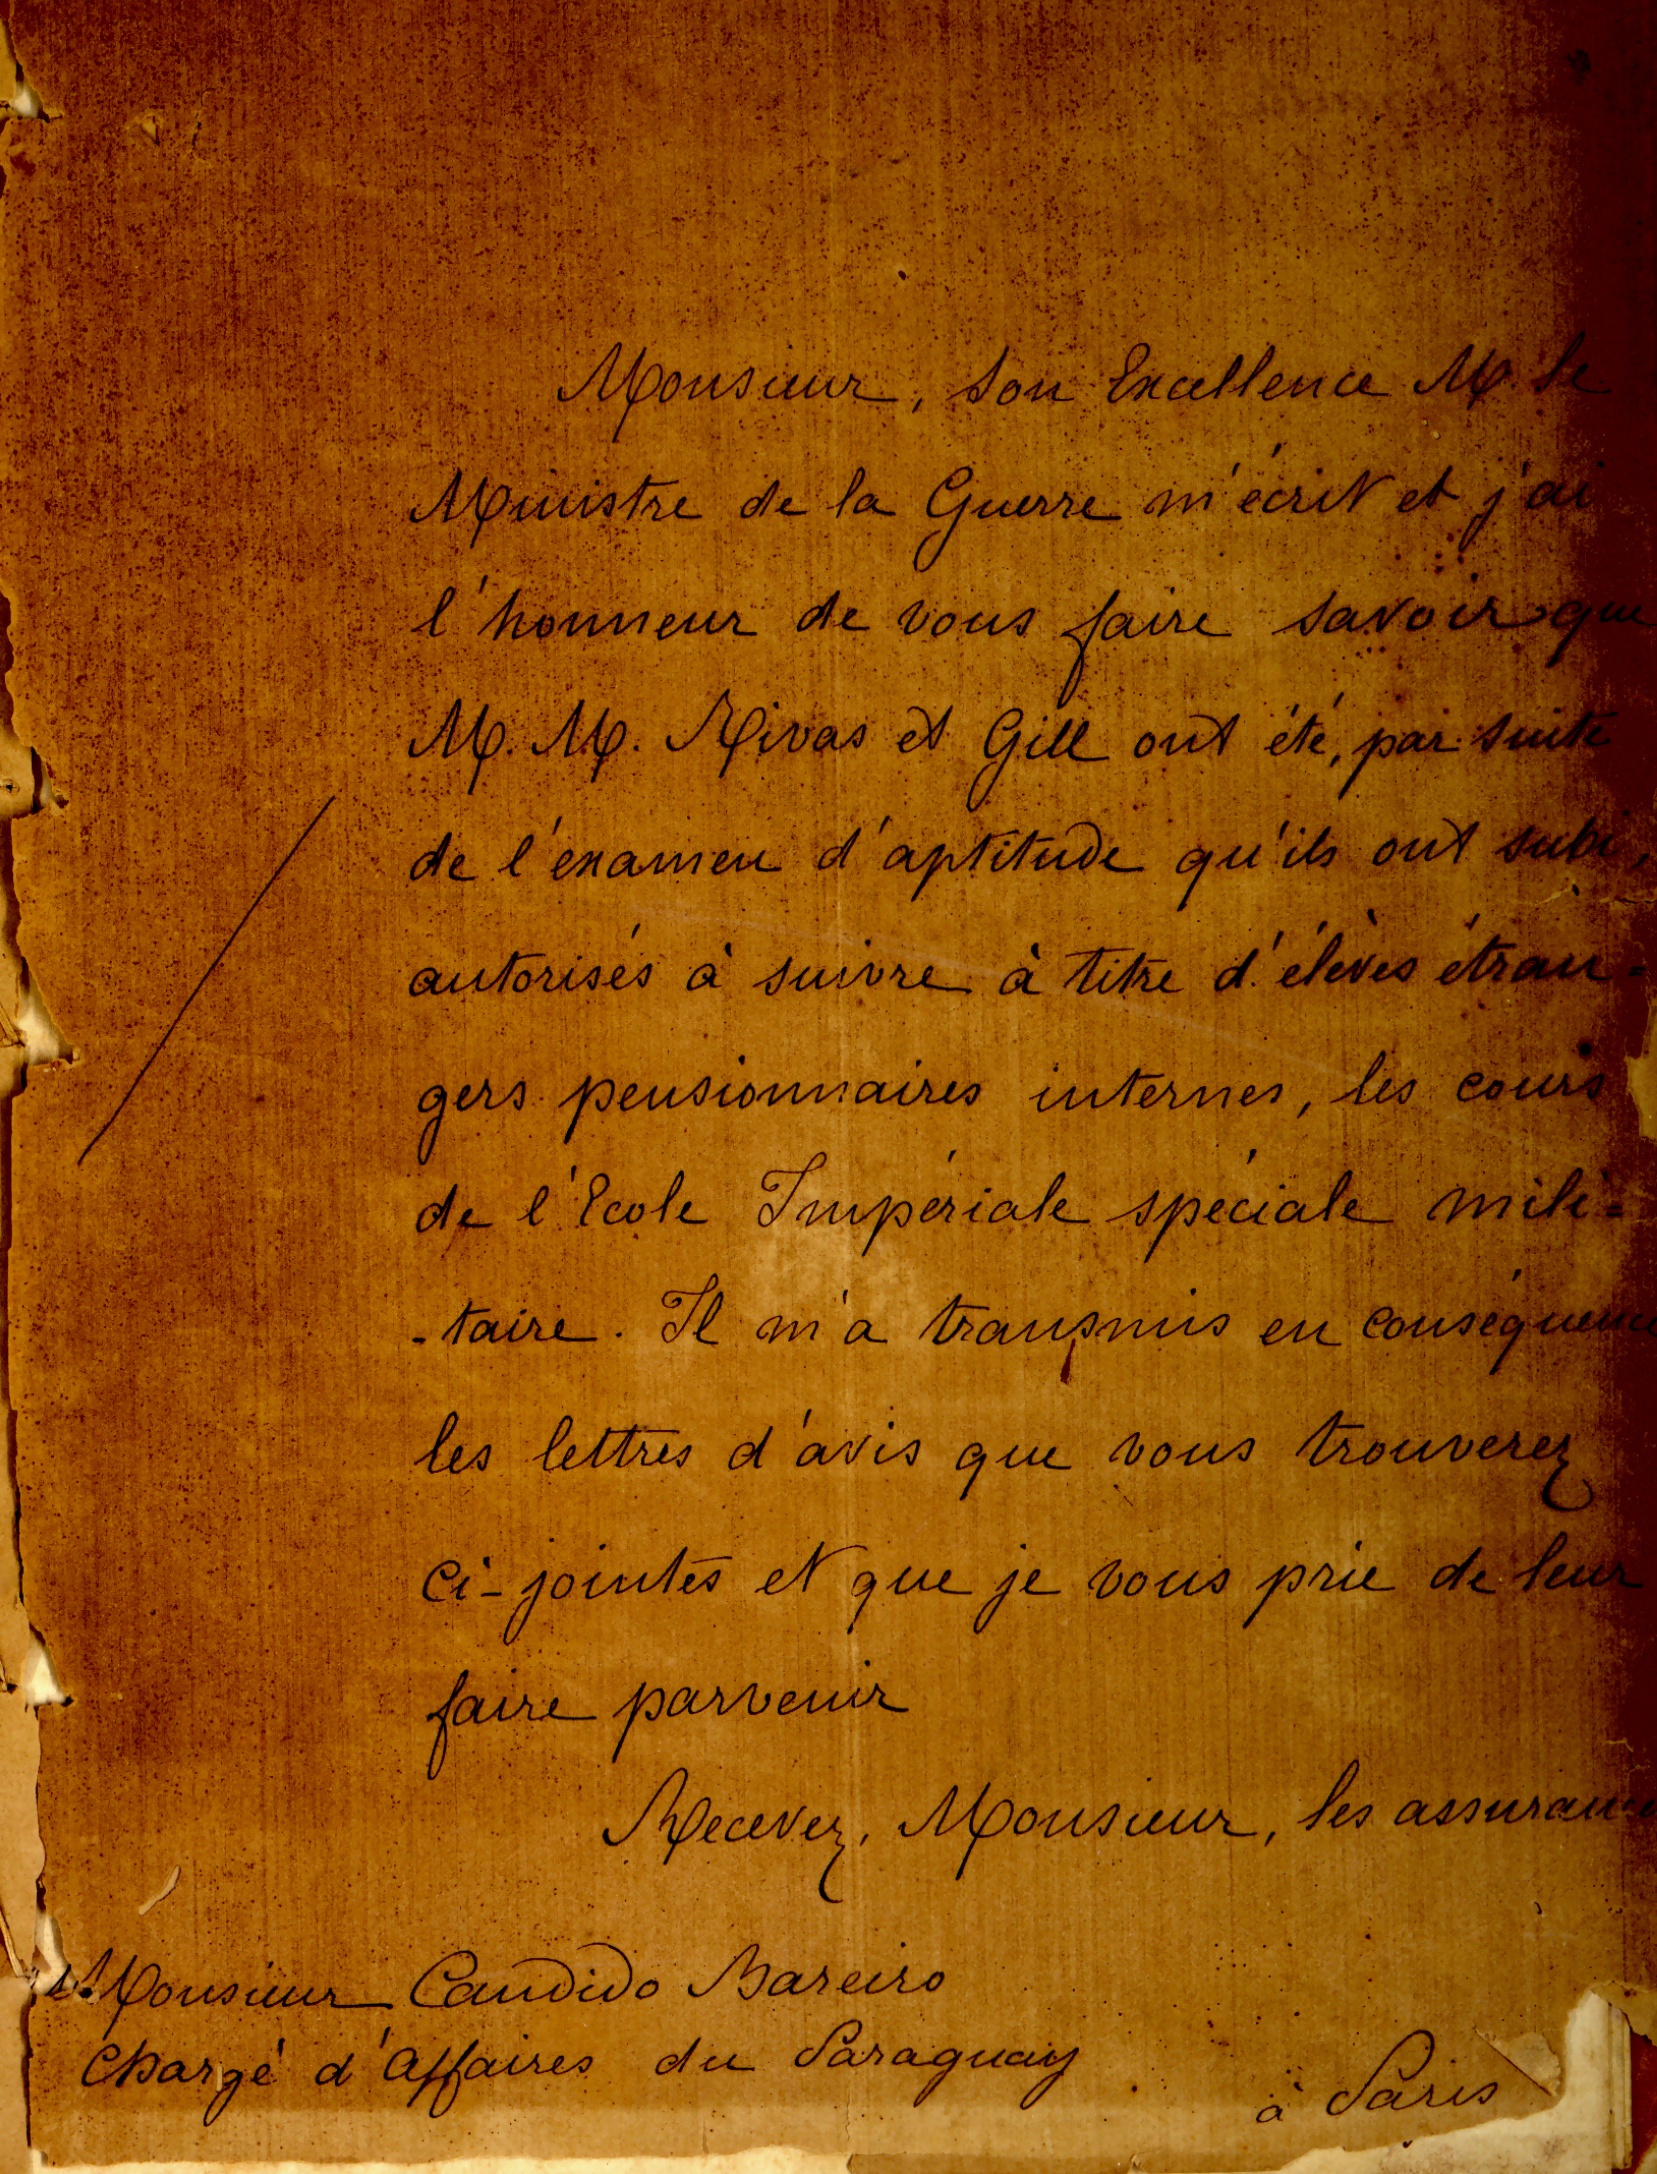 Monsieur, Son Excellence M. le
Ministre de la Guerre m'écrit et j'ai
l'honneur de vous faire savoir que
M. M. Rivas et Gill ont été, par suite
de l'examen d'aptitude qu'ils ont subi,
autorisés à suivre à titre d'élèves étran=
gers pensionnaires internes, les cours
de l'Ecole Impériale spéciale mili=
-taire. Il m'a transmis en conséquence
les lettres d'avis que vous trouverez
ci-jointes et que je vous prie de leur
faire parvenir
Recevez, Monsieur, les assurances
Monsieur Candido Bareiro
Chargé d'Affaires du Paraguay
à Paris